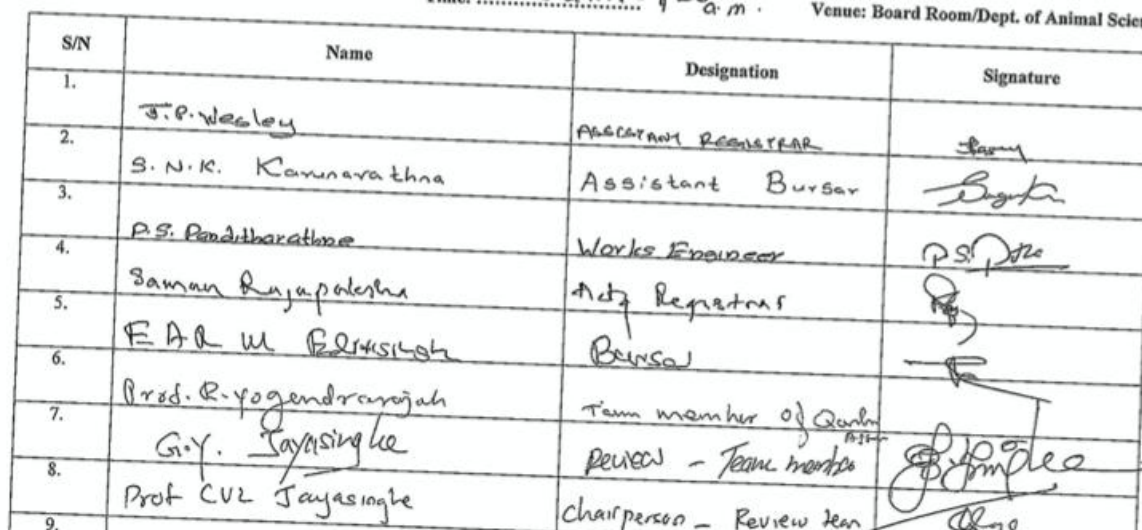 a.m. Venue: Board Room/Dept. of Animal Scien
S/N Name Designation Signature
1. J.P. Wesley ASSISTANT REGISTRAR
2. S.N.K. Karunarathna Assistant Bursar
3. P.S. Panditharathne Works Engineer
4. Saman Rajapaksha Actg Registrar
5. E A R W Bursar
6. Prof. R. Yogendrarajah Team member of
7. G.Y. Jayasinghe Review - Team member
8. Prof CVL Jayasinghe Chairperson - Review team
9.